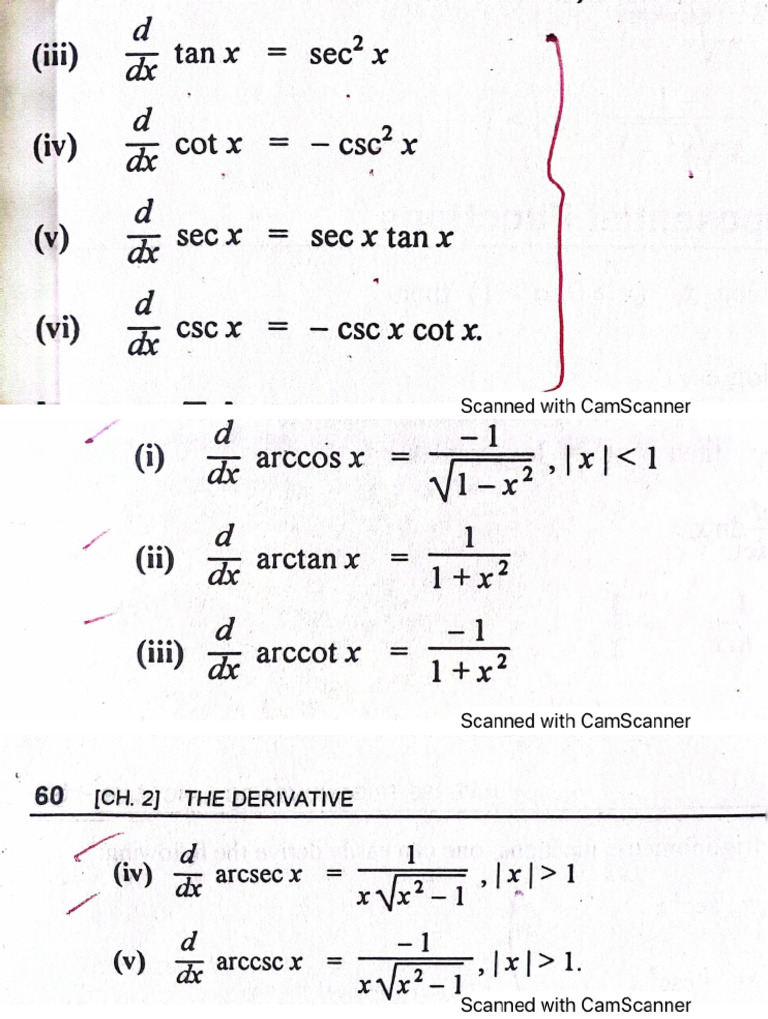 (iii) d/dx tan x = sec² x
(iv) d/dx cot x = – csc² x
(v) d/dx sec x = sec x tan x
(vi) d/dx csc x = – csc x cot x.
Scanned with CamScanner
(i) d/dx arccos x = –1/√(1 – x²) , | x | < 1
(ii) d/dx arctan x = 1/(1 + x²)
(iii) d/dx arccot x = –1/(1 + x²)
Scanned with CamScanner
60 [CH. 2] THE DERIVATIVE
(iv) d/dx arcsec x = 1/(x√(x² – 1)) , | x | > 1
(v) d/dx arccsc x = –1/(x√(x² – 1)) , | x | > 1.
Scanned with CamScanner